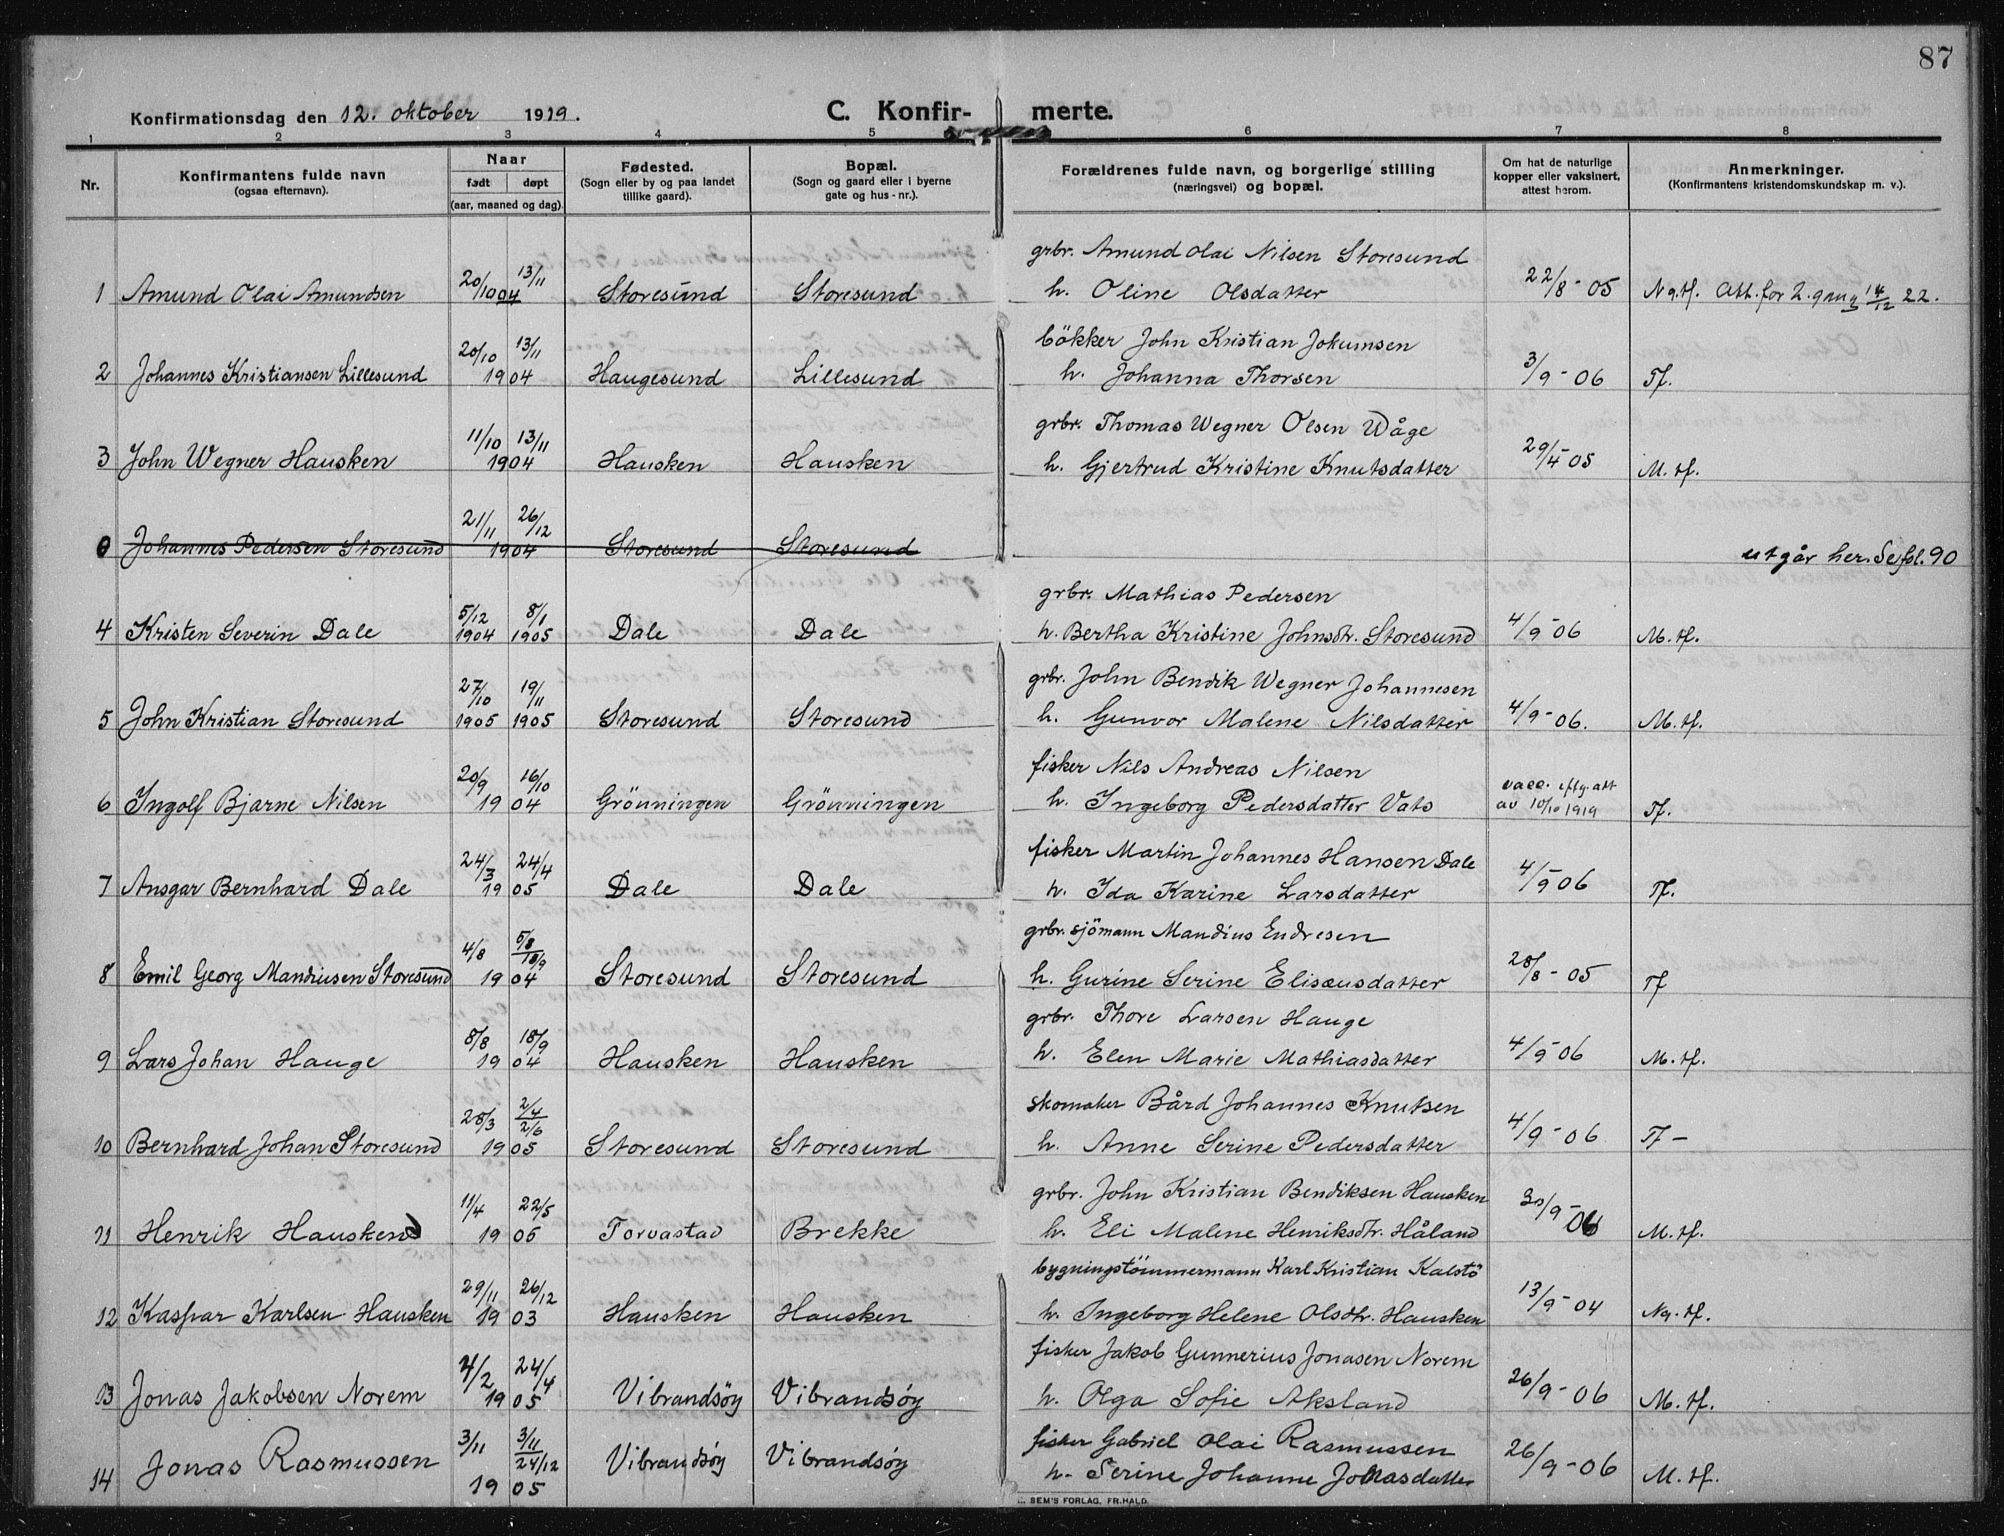 87
Konfirmationsdag den 12. oktober 1919.
C. Konfir- merte.
1 2 3 4 5 6 7 8
Nr.
Konfirmantens fulde navn
(ogsaa efternavn).
Naar
født døpt
(aar, maaned og dag)
Fødested.
(Sogn eller by og paa landet
tillike gaard).
Bopæl.
(Sogn og gaard eller i byerne
gate og hus-nr.).
Forældrenes fulde navn, og borgerlige stilling
(næringsvei) og bopæl.
Om hat de naturlige
kopper eller vaksinert,
attest herom.
Anmerkninger.
(Konfirmantens kristendomskundskap m. v.).
grbr. Amund Olai Nilsen Storesund
1 Amund Olai Amundsen 20/10 04 13/11 Storesund Storesund h. Oline Olsdatter 22/8 - 05 Ng. tf. Att. for 2. gang 14/12 22.
20/10 13/11 bökker John Kristian Jokumsen
2 Johannes Kristiansen Lillesund 1904 Haugesund Lillesund h. Johanna Thorsen 3/9 - 06 Tf.
11/10 13/11 grbr. Thomas Wegner Olsen Våge
3 John Wegner Hausken 1904 Hausken Hausken h. Gjertrud Kristine Knutsdatter 29/4 - 05 M. tf.
21/11 26/12
0 Johannes Pedersen Storesund 1904 Storesund Storesund utgår her. Se fol. 90
5/12 8/1 grbr. Mathias Pedersen
4 Kristen Severin Dale 1904 1905 Dale Dale h. Bertha Kristine Johnsdtr. Storesund 4/9 - 06 M. tf.
27/10 19/11 grbr. John Bendik Wegner Johannesen
5 John Kristian Storesund 1905 1905 Storesund Storesund h. Gunvor Malene Nilsdatter 4/9 - 06. M. tf.
20/9 16/10 fisker Nils Andreas Nilsen vacc. eftg. att
6 Ingolf Bjarne Nilsen 1904 Grönningen Grönningen h. Ingeborg Pedersdatter Vats av 10/10 1919 Tf.
24/3 24/4 fisker Martin Johannes Hansen Dale
7 Ansgar Bernhard Dale 1905 Dale Dale h. Ida Karine Larsdatter 4/9 - 06 Tf.
4/8 5/8 18/9 grbr. sjömann Mandius Endresen
8 Emil Georg Mandiusen Storesund 1904 Storesund Storesund h. Gurine Serine Elisæusdatter 28/8 - 05 Tf
8/8 18/9 grbr. Thore Larsen Hauge
9 Lars Johan Hauge 1904 Hausken Hausken h. Elen Marie Mathiasdatter 4/9 - 06 M. tf.
28/3 2/4 2/6 skomaker Bård Johannes Knutsen
10 Bernhard Johan Storesund 1905 Storesund Storesund h. Anne Serine Pedersdatter 4/9 - 06 Tf -
11/4 22/5 grbr. John Kristian Bendiksen Hausken
11 Henrik Hausken 1905 Torvastad Brekke h. Eli Malene Henriksdtr. Håland 30/9 - 06 M. tf.
29/11 26/12 bygningstömmermann Karl Kristian Kalstö
12 Kaspar Karlsen Hausken 1903 Hausken Hausken h. Ingeborg Helene Olsdtr. Hausken 13/9 - 04 Ng. tf.
4/2 24/4 fisker Jakob Gunnerius Jonasen Norem
13 Jonas Jakobsen Norem 1905 Vibrandsöy Vibrandsöy h. Olga Sofie Aksland 26/9 - 06 M. tf.
3/11 3/11 24/12 fisker Gabriel Olai Rasmussen
14 Jonas Rasmussen 1905 Vibrandsöy Vibrandsöy h. Serine Johanne Jonasdatter 26/9 - 06 M. tf.
SEM'S FORLAG, FR.HALD.